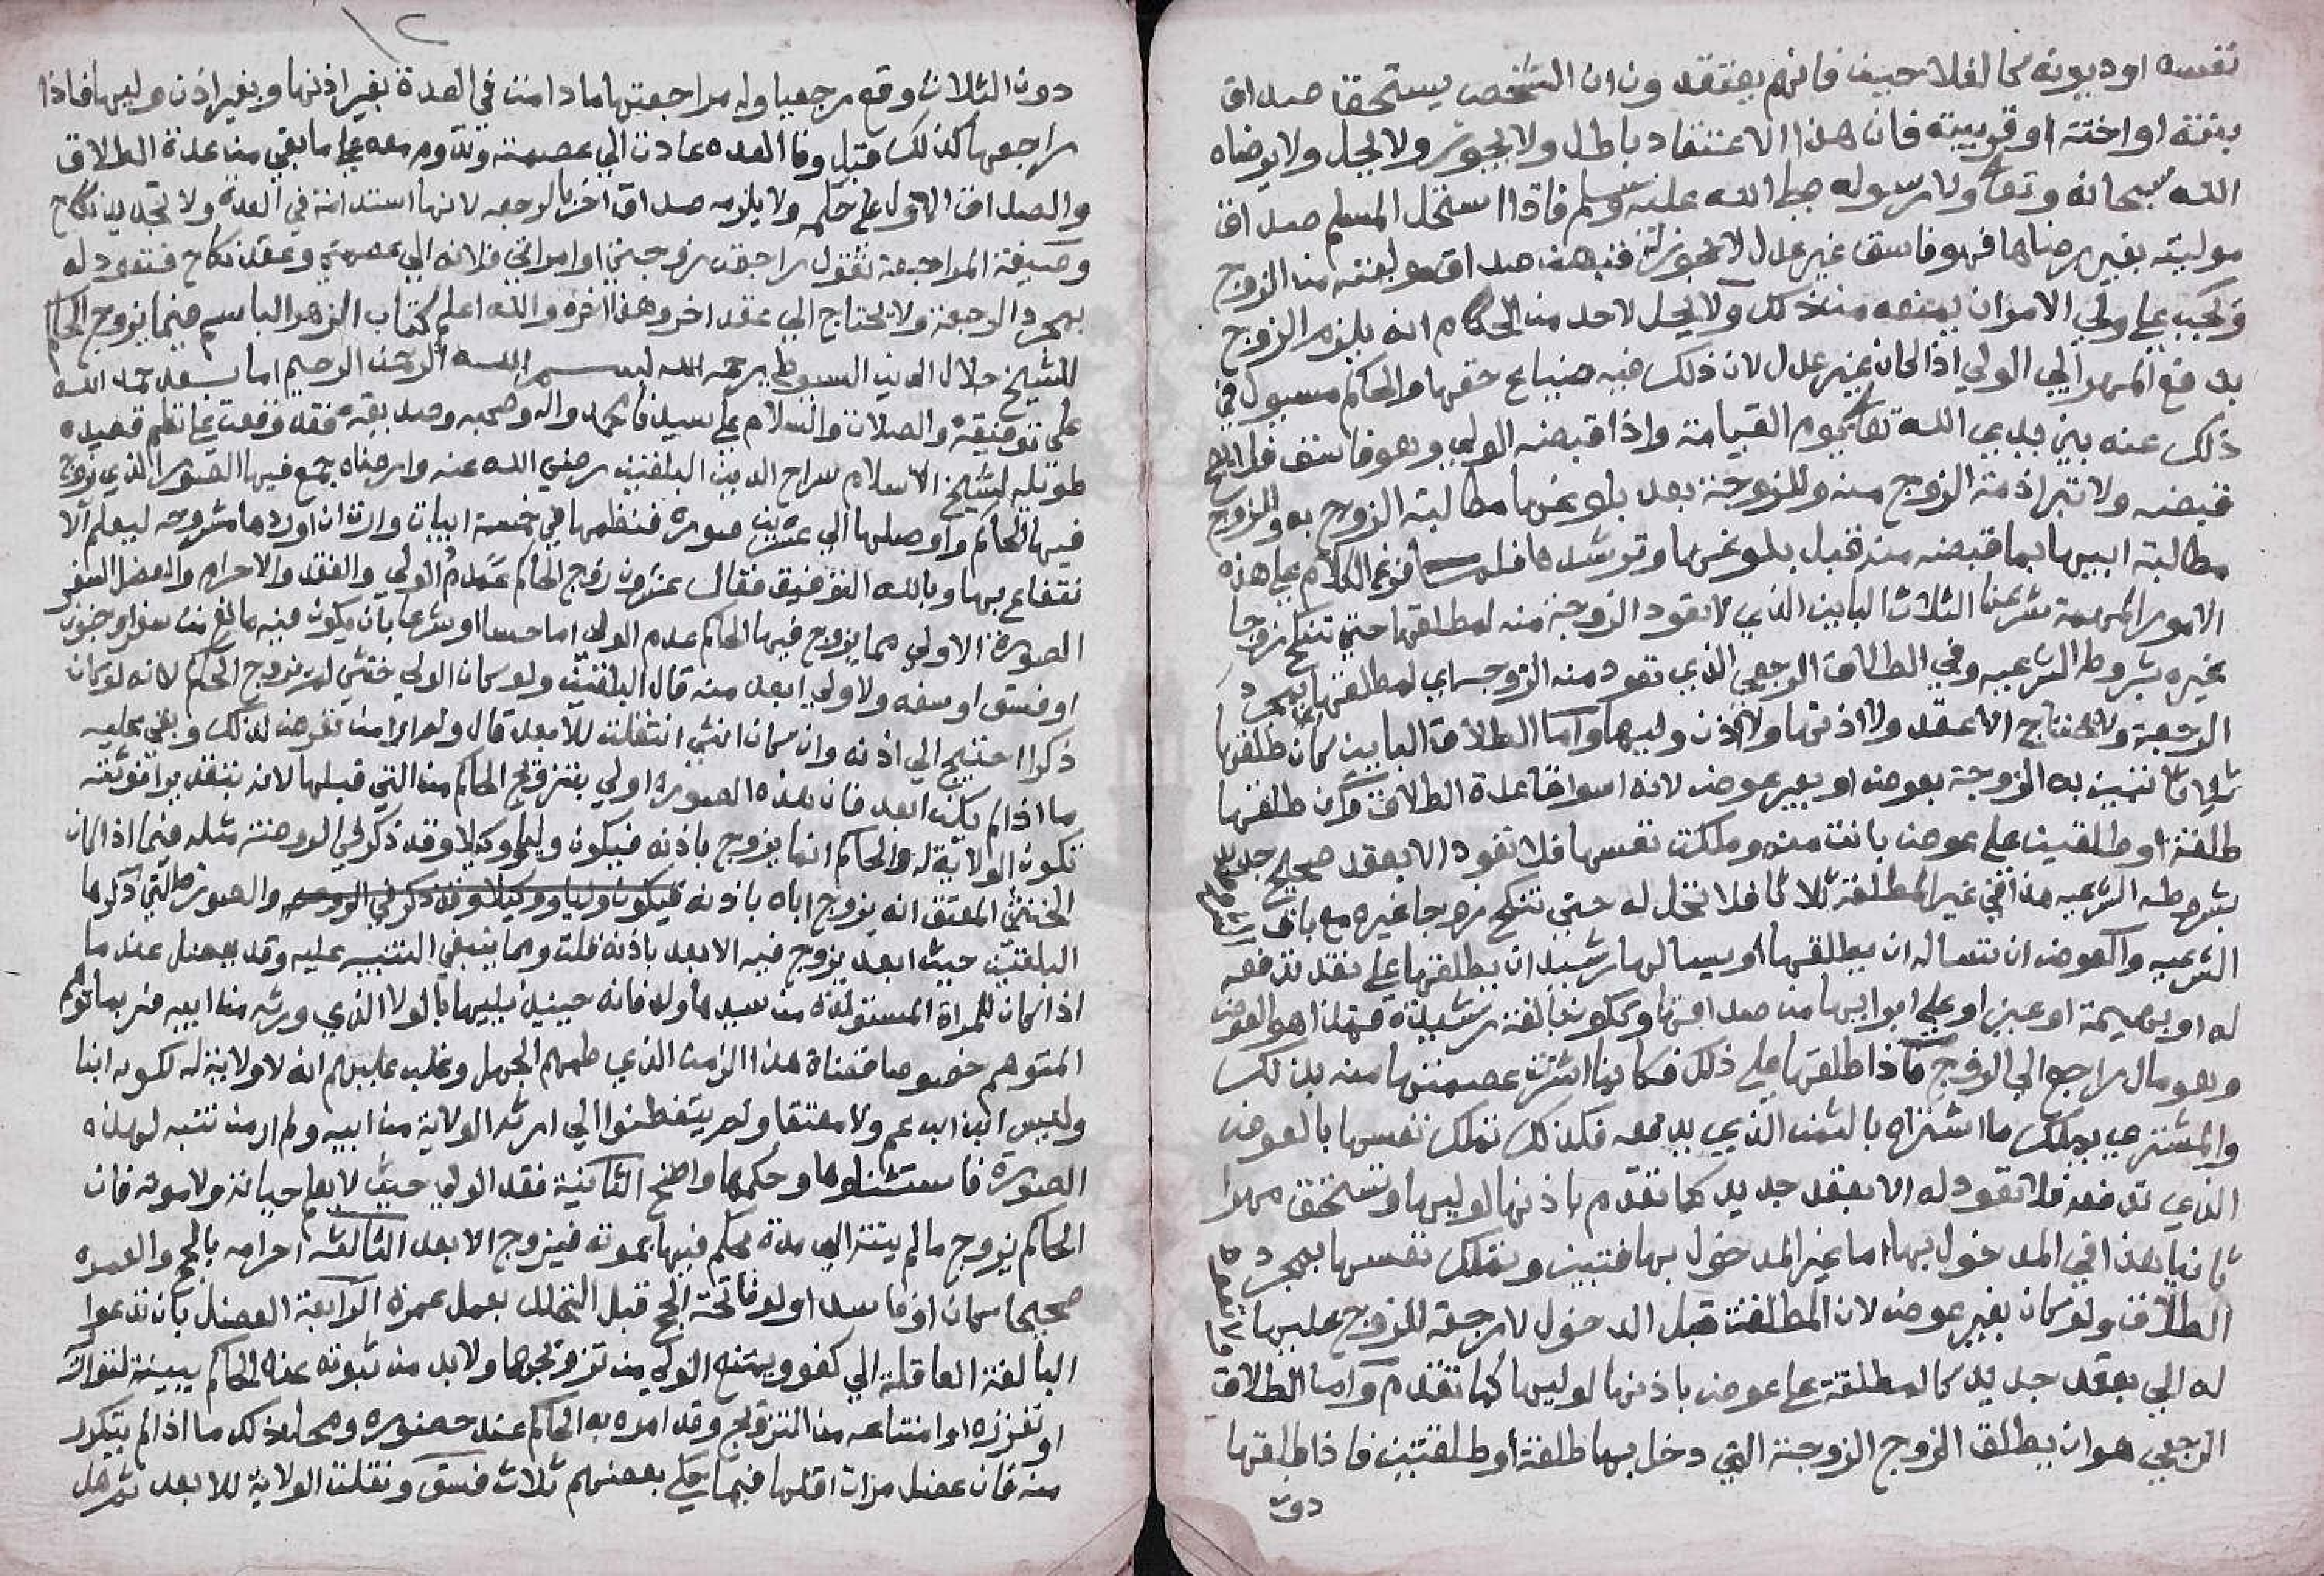 نفسه او ديونه كالفلاحين فانهم يعتقدون ان الشخص يستحق صداق
بنته او اخته او قريبته فان هذا الاعتقاد باطل ولا يجوز ولا يحل ولا يرضاه
الله سبحانه وتعالى ولا رسوله صلى الله عليه وسلم فاذا استحل المسلم صداق
موليته بغير رضاها فهو فاسق غير عدل لا يجوز له قبض صداق موليته من الزوج
ويجب على ولي الامر ان يمنعه من ذلك ولا يحل لاحد من الحكام انه يلزم الزوج
بدفع المهر الي الولي اذا كان غير عدل لان ذلك فيه ضياع حقها والحاكم مسيول في
ذلك عنه بين يدي الله تعالى يوم القيامة واذا قبضه الولي وهو فاسق فلا يصح
قبضه ولا تبرا ذمة الزوج منه وللزوجة بعد بلوغها مطالبة الزوج به وللزوج
مطالبة ابيها بما قبضه منه قبل بلوغها وترشدها فلما فرغ الكلام على هذه
الامور المهمة شرعنا الثلاث الباين الذي لا تعود الزوجة منه لمطلقها حتي تنكح زوجا
غيره بشروطه الشرعيه وفي الطلاق الرجعي الذي تعود منه الزوجه اي لمطلقها بمجرد
الرجعة ولا يحتاج الا عقد ولا اذنها ولا اذن وليها واما الطلاق الباين كان طلقها
ثلاثا تبين به الزوجة بعوض او بغير عوض لانه استوفا عدة الطلاق وان طلقها
طلقة او طلقتين على عوض بانت منه وملكت نفسها فلا تعود الا بعقد صحيح جديد
بشروطه الشرعيه هذا في غير المطلقة ثلاثا فلا تحل له حتي تنكح زوجا غيره مع باقي
الشرعيه والعوض ان تساله ان يطلقها او يسالها رشيد ان يطلقها على نقد تدفعه
له او بهيمة او عين او على ابرايها من صداقها وتكون بالغة رشيدة فهذا هو العوض
وهو مال راجع الي الزوج فاذا طلقها على ذلك فكانها اشترت عصمتها منه بذلك
والمشتري يملك ما اشتراه بالثمن الذي يدفعه فكذلك تملك نفسها بالعوض
الذي تدفعه فلا تعود له الا بعقد جديد كما تقدم باذنها لوليها وتستحق مهرا
ثانيا هذا في المدخول بها اما غير المدخول بها فتبين وتملك نفسها بمجرد
الطلاق ولو كان بغير عوض لان المطلقة قبل الدخول لا رجعة للزوج عليها
له الي بعقد جديد كالمطلقة على عوض باذنها لوليها كما تقدم واما الطلاق
الرجعي هو ان يطلق الزوج الزوجة التي دخل بها طلقة او طلقتين فاذا طلقها
دون
١٢
دون الثلاث وقع رجعيا وله مراجعتها ما دامت في العدة بغير اذنها وبغير اذن وليها فاذا
راجعها كذلك قبل وفا العده عادت الي عصمته وتدوم معه على ما بقي من عدة الطلاق
والصداق الاول على حكمه ولا يلزمه صداق اخر بالرجعه لانها استدامة في العدة ولا تجديد نكاح
وصيغة المراجعة تقول راجعت زوجتي او امراتي فلانه الي عصمتي وعقد نكاح فتعود له
بمجرد الرجعة ولا يحتاج الي عقد اخر وهذا اخره والله اعلم كتاب الزهر الباسم فيما يزوج الحاكم
للشيخ جلال الدين السيوطي رحمه الله بسم الله الرحمن الرحيم اما بعد حمد الله
على توفيقه والصلاة والسلام على سيدنا محمد واله وصحبه وفقه وقفت على نظم قصيده
طويله لشيخ الاسلام سراج الدين البلقيني رضي الله عنه وارضاه جمع فيها الصور الذي يزوج
فيها الحاكم واوصلها الي عشرين صورة فنظمها في خمسة ابيات واردت ان اوردها مشروحه ليعلم الا
نتفاع بها وبالله التوفيق فقال عشرون زوج الحاكم عدم الولي والفقد والاحرام والعضل السفر
الصورة الاولي مما يزوج فيها الحاكم عدم الولي اما حسا او شرعا بان يكون فيه مانع من صغر او جنون
او فسق او سفه ولا ولي ابعد منه قال البلقيني ولو كان الولي خنثي لم يزوج الحاكم لانه لو كان
ذكرا احتيج الي اذنه وان كان انثي انتقلت للابعد قال ولم ار من تعرض لذلك وبقي عليه
ما اذا لم يكن ابعد فان هذه الصورة اولي بتزويج الحاكم من التي قبلها لانه بتقدير انوثته
تكون الولاية له والحاكم انما يزوج باذنه فيكون وليا ووكيلا وقد ذكر في الروضة مثله فيما اذا كان
الخنثي المعتق انه يزوج اباه باذنه فيكون وليا ووكيلا وقد ذكر في الروضه والصورة التي ذكرها
البلقيني حيث ابعد يزوج فيه الابعد باذنه قلت ومما ينبغي التنبيه عليه وقد يعضل عند ما
اذا كان للمراة المستولدة من سيدها ولد فانه حينيذ يليها بالولا الذي ورثه من ابيه فربما توهم
المتوهم خصوصا قضاة هذا الزمن الذي طمهم الجهل وغلب عليهم انه لا ولاية له لكونه ابنا
وليس ابن ابن عم ولا معتقا ولم يتفطنوا الي ارثه الولاية من ابيه ولم ار من تنبه لهذه
الصورة فاستثناوها وحكمها واضح الثانية فقد الولي حيث لا يعلم حياته ولا موته فان
الحاكم يزوج ما لم ينته الي مدة يحكم فيها بموته فيزوج الابعد الثالثه احرامه بالحج والعمره
صحيحا كان او فاسدا ولو فاته الحج قبل التحلل بعمل عمرة الرابعة العضل بان تدعوا
البالغة العاقلة الي كفو ويمنع الولي من تزويجها ولا بد من ثبوته عند الحاكم ببينة لتواري
او تعززه او امتناعه من التزويج وقد امره به الحاكم عند حضوره ومحل ذلك ما اذا لم يتكرر
منه فان عضل مرات اقلها فيما حكي بعضهم ثلاث فسق ونقلت الولاية للابعد ثم هل